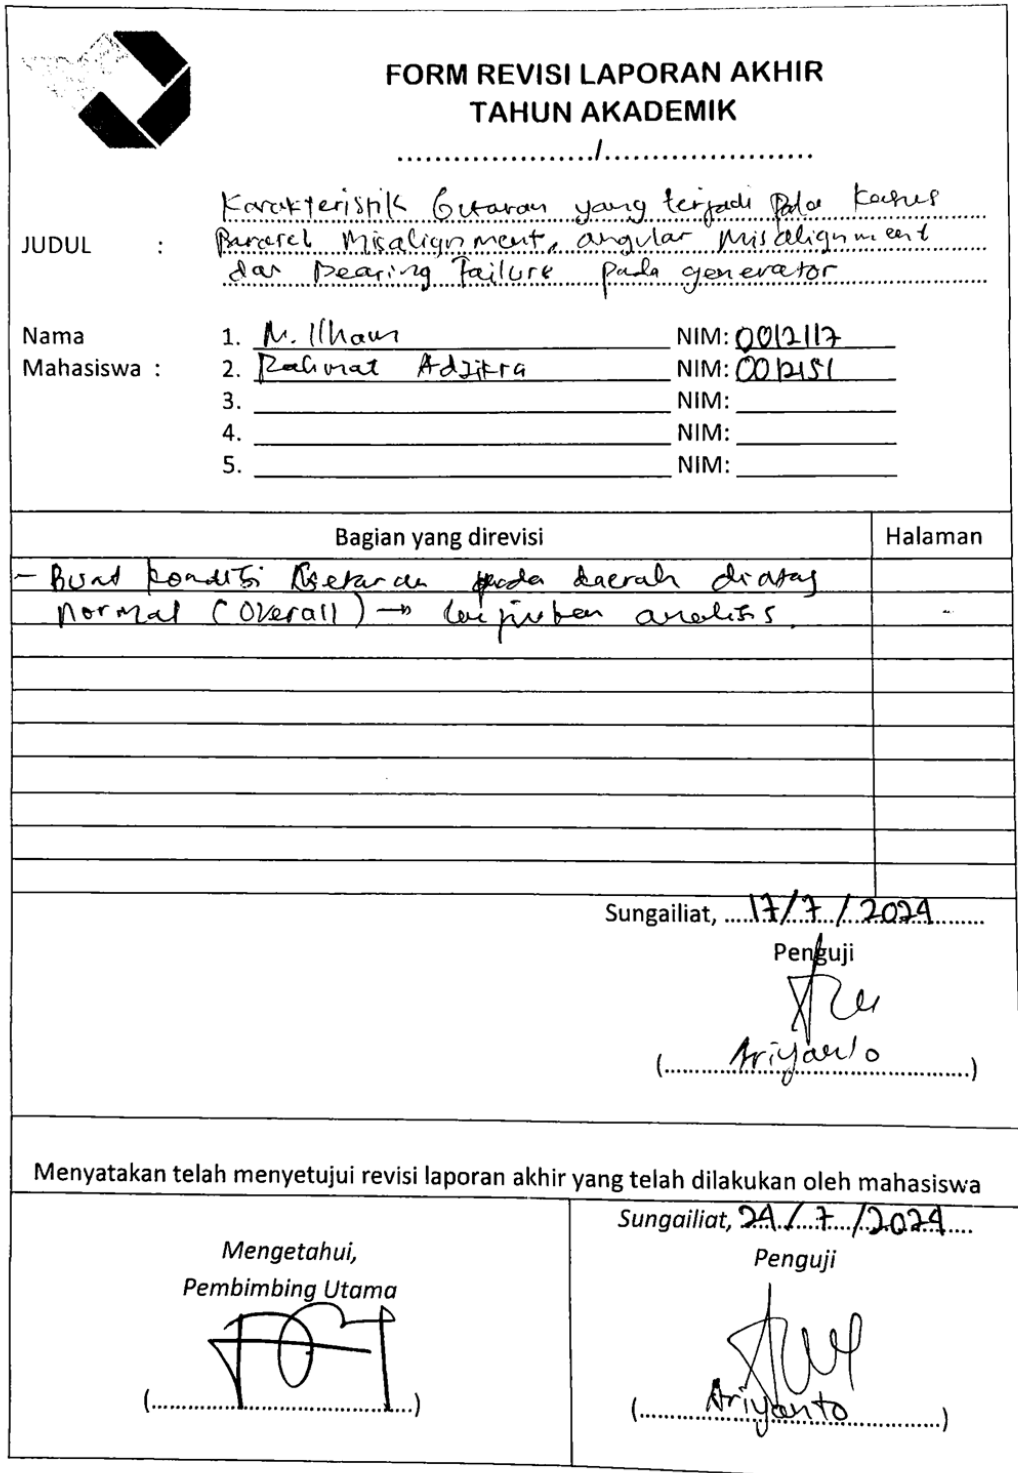 FORM REVISI LAPORAN AKHIR
TAHUN AKADEMIK
....................../.......................
Karakteristik Getaran yang terjadi pada kasus
JUDUL : Pararel Misalignment, angular Misalignment
dan Bearing Failure pada generator
Nama 1. M. Ilham NIM: 0012117
Mahasiswa : 2. Rahmat Adzikra NIM: 0012151
3. NIM:
4. NIM:
5. NIM:
Bagian yang direvisi Halaman
- Buat kondisi Getaran pada daerah diatas
normal (Overall) → lanjutkan analisis. -
Sungailiat, 17/7/2024
Penguji
(Ariyanto)
Menyatakan telah menyetujui revisi laporan akhir yang telah dilakukan oleh mahasiswa
Sungailiat, 24/7/2024
Mengetahui, Penguji
Pembimbing Utama
(........................................) (Ariyanto)